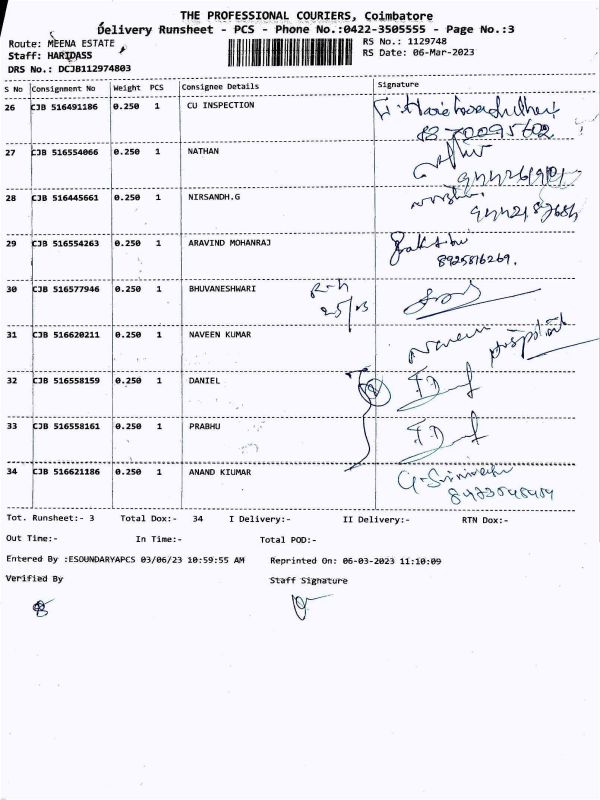 THE PROFESSIONAL COURIERS, Coimbatore
Delivery Runsheet - PCS - Phone No.:0422-3505555 - Page No.:3
Route: MEENA ESTATE
Staff: HARIDASS
DRS No.: DCJB112974803
RS No.: 1129748
RS Date: 06-Mar-2023
S No Consignment No Weight PCS Consignee Details Signature
26 CJB 516491186 0.250 1 CU INSPECTION
27 CJB 516554066 0.250 1 NATHAN
28 CJB 516445661 0.250 1 NIRSANDH.G
29 CJB 516554263 0.250 1 ARAVIND MOHANRAJ
8925816269.
30 CJB 516577946 0.250 1 BHUVANESHWARI
31 CJB 516620211 0.250 1 NAVEEN KUMAR
Naveen
32 CJB 516558159 0.250 1 DANIEL
33 CJB 516558161 0.250 1 PRABHU
34 CJB 516621186 0.250 1 ANAND KIUMAR
Tot. Runsheet:- 3 Total Dox:- 34 I Delivery:- II Delivery:- RTN Dox:-
Out Time:- In Time:- Total POD:-
Entered By :ESOUNDARYAPCS 03/06/23 10:59:55 AM Reprinted On: 06-03-2023 11:10:09
Verified By Staff Signature